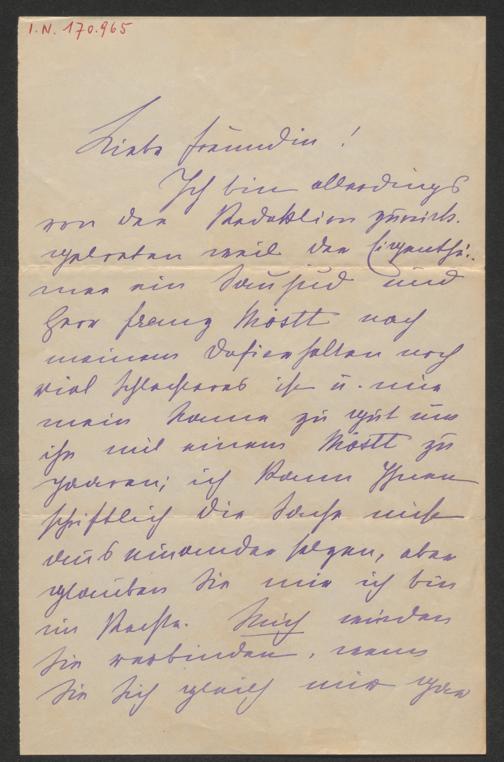 I.N. 170.965
Liebe Freundin!
Ich bin allerdings
von der Redaktion zurück-
getreten weil der Eigenthü-
mer ein Saujud und
Herr Franz Möstl nach
meinem Dafürhalten noch
viel Schlechteres ist u. mir
mein Name zu gut um
ihn mit einem Möstl zu
paaren; ich kann Ihnen
schriftlich die Sache nicht
aus einander setzen, aber
glauben Sie mir ich bin
im Rechte. Mich würden
Sie verbinden, wenn
Sie sich gleich mir gar